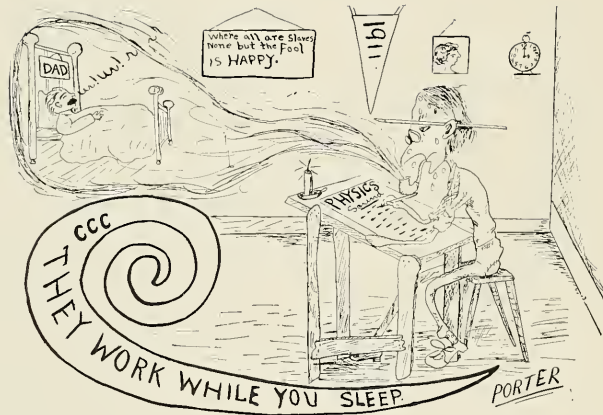 Where all are Slaves
None but the Fool
IS HAPPY.
1911
DAD
ur! ur! r
PHYSICS
Sound
CCC
THEY WORK WHILE YOU SLEEP.
PORTER